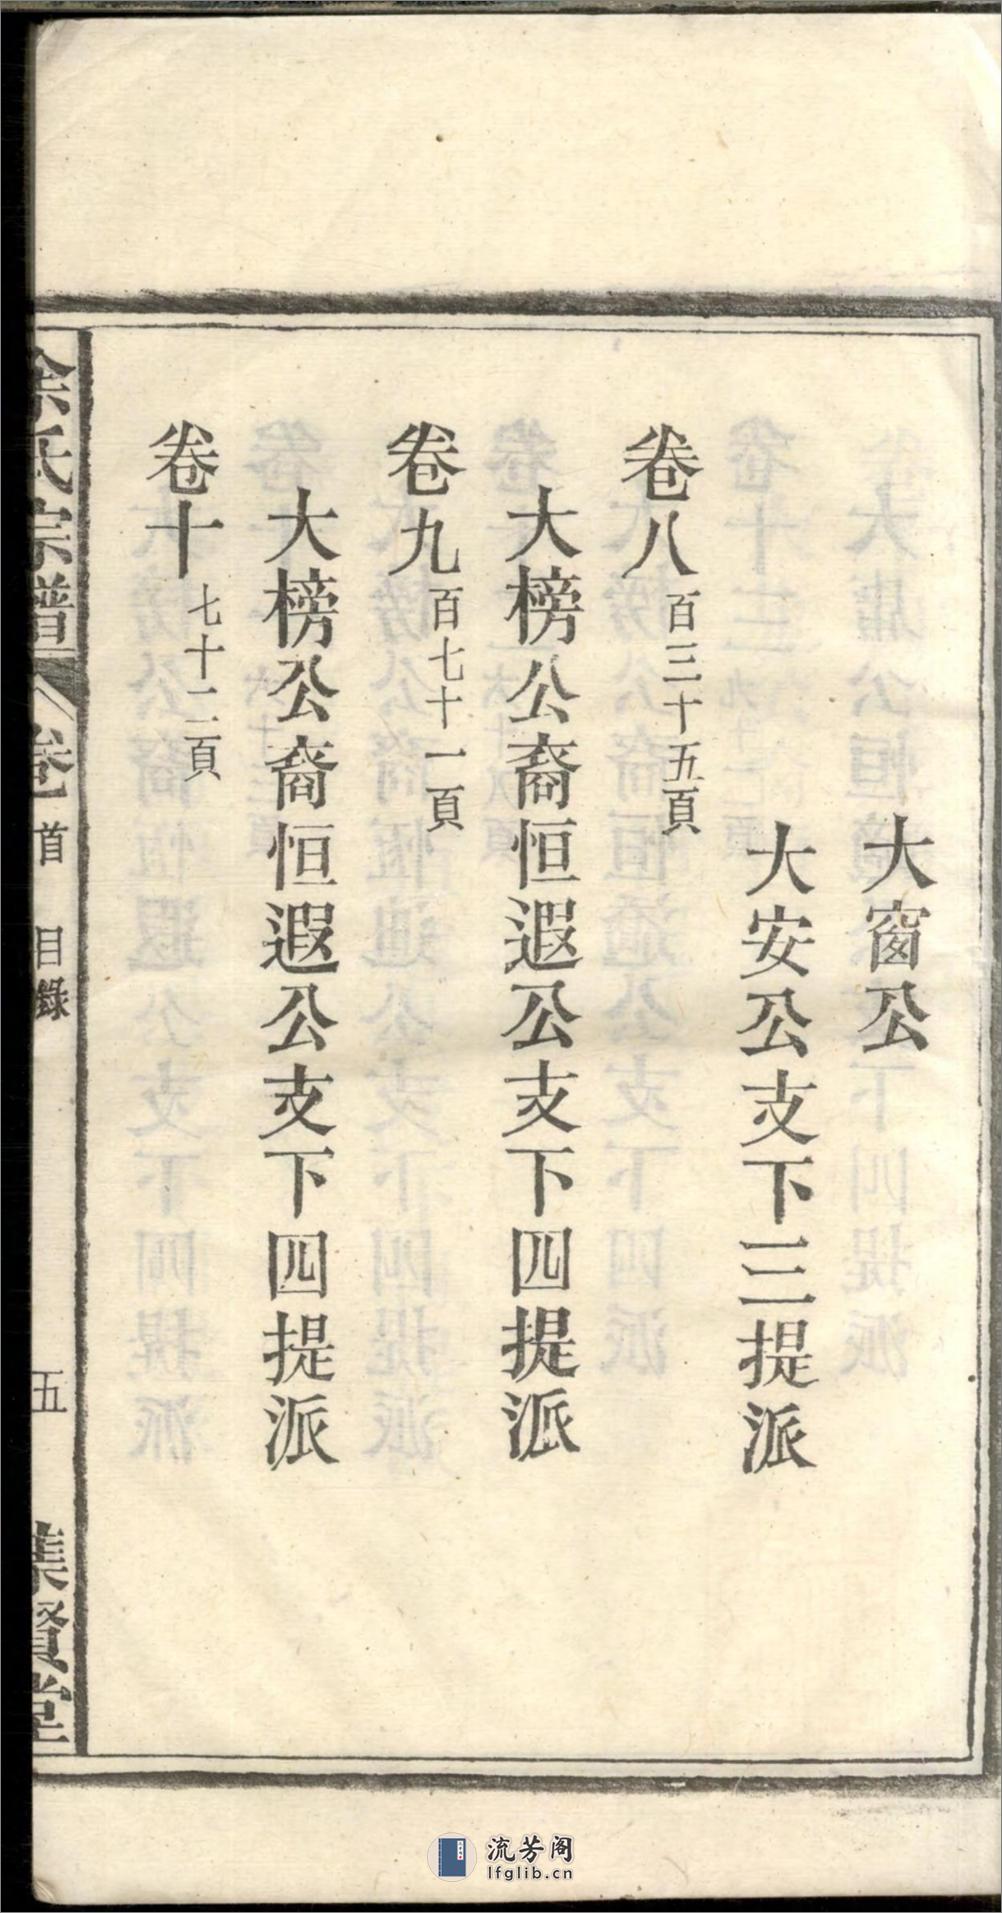 大窗公
大安公支下三提派
卷八百三十五頁
大榜公裔恒遐公支下四提派
卷九百七十一頁
大榜公裔恒遐公支下四提派
卷十七十二頁
氏宗譜 卷首 目錄 五 集賢堂
流芳阁
lfglib.cn